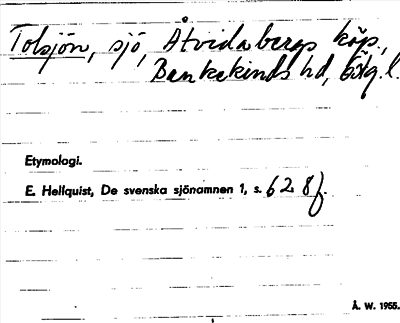 Tolsjön, sjö, Åtvidabergs köp.,
Bankekinds hd, Östg. l.
Etymologi.
E. Hellquist, De svenska sjönamnen 1, s. 628 f.
Å. W. 1955.